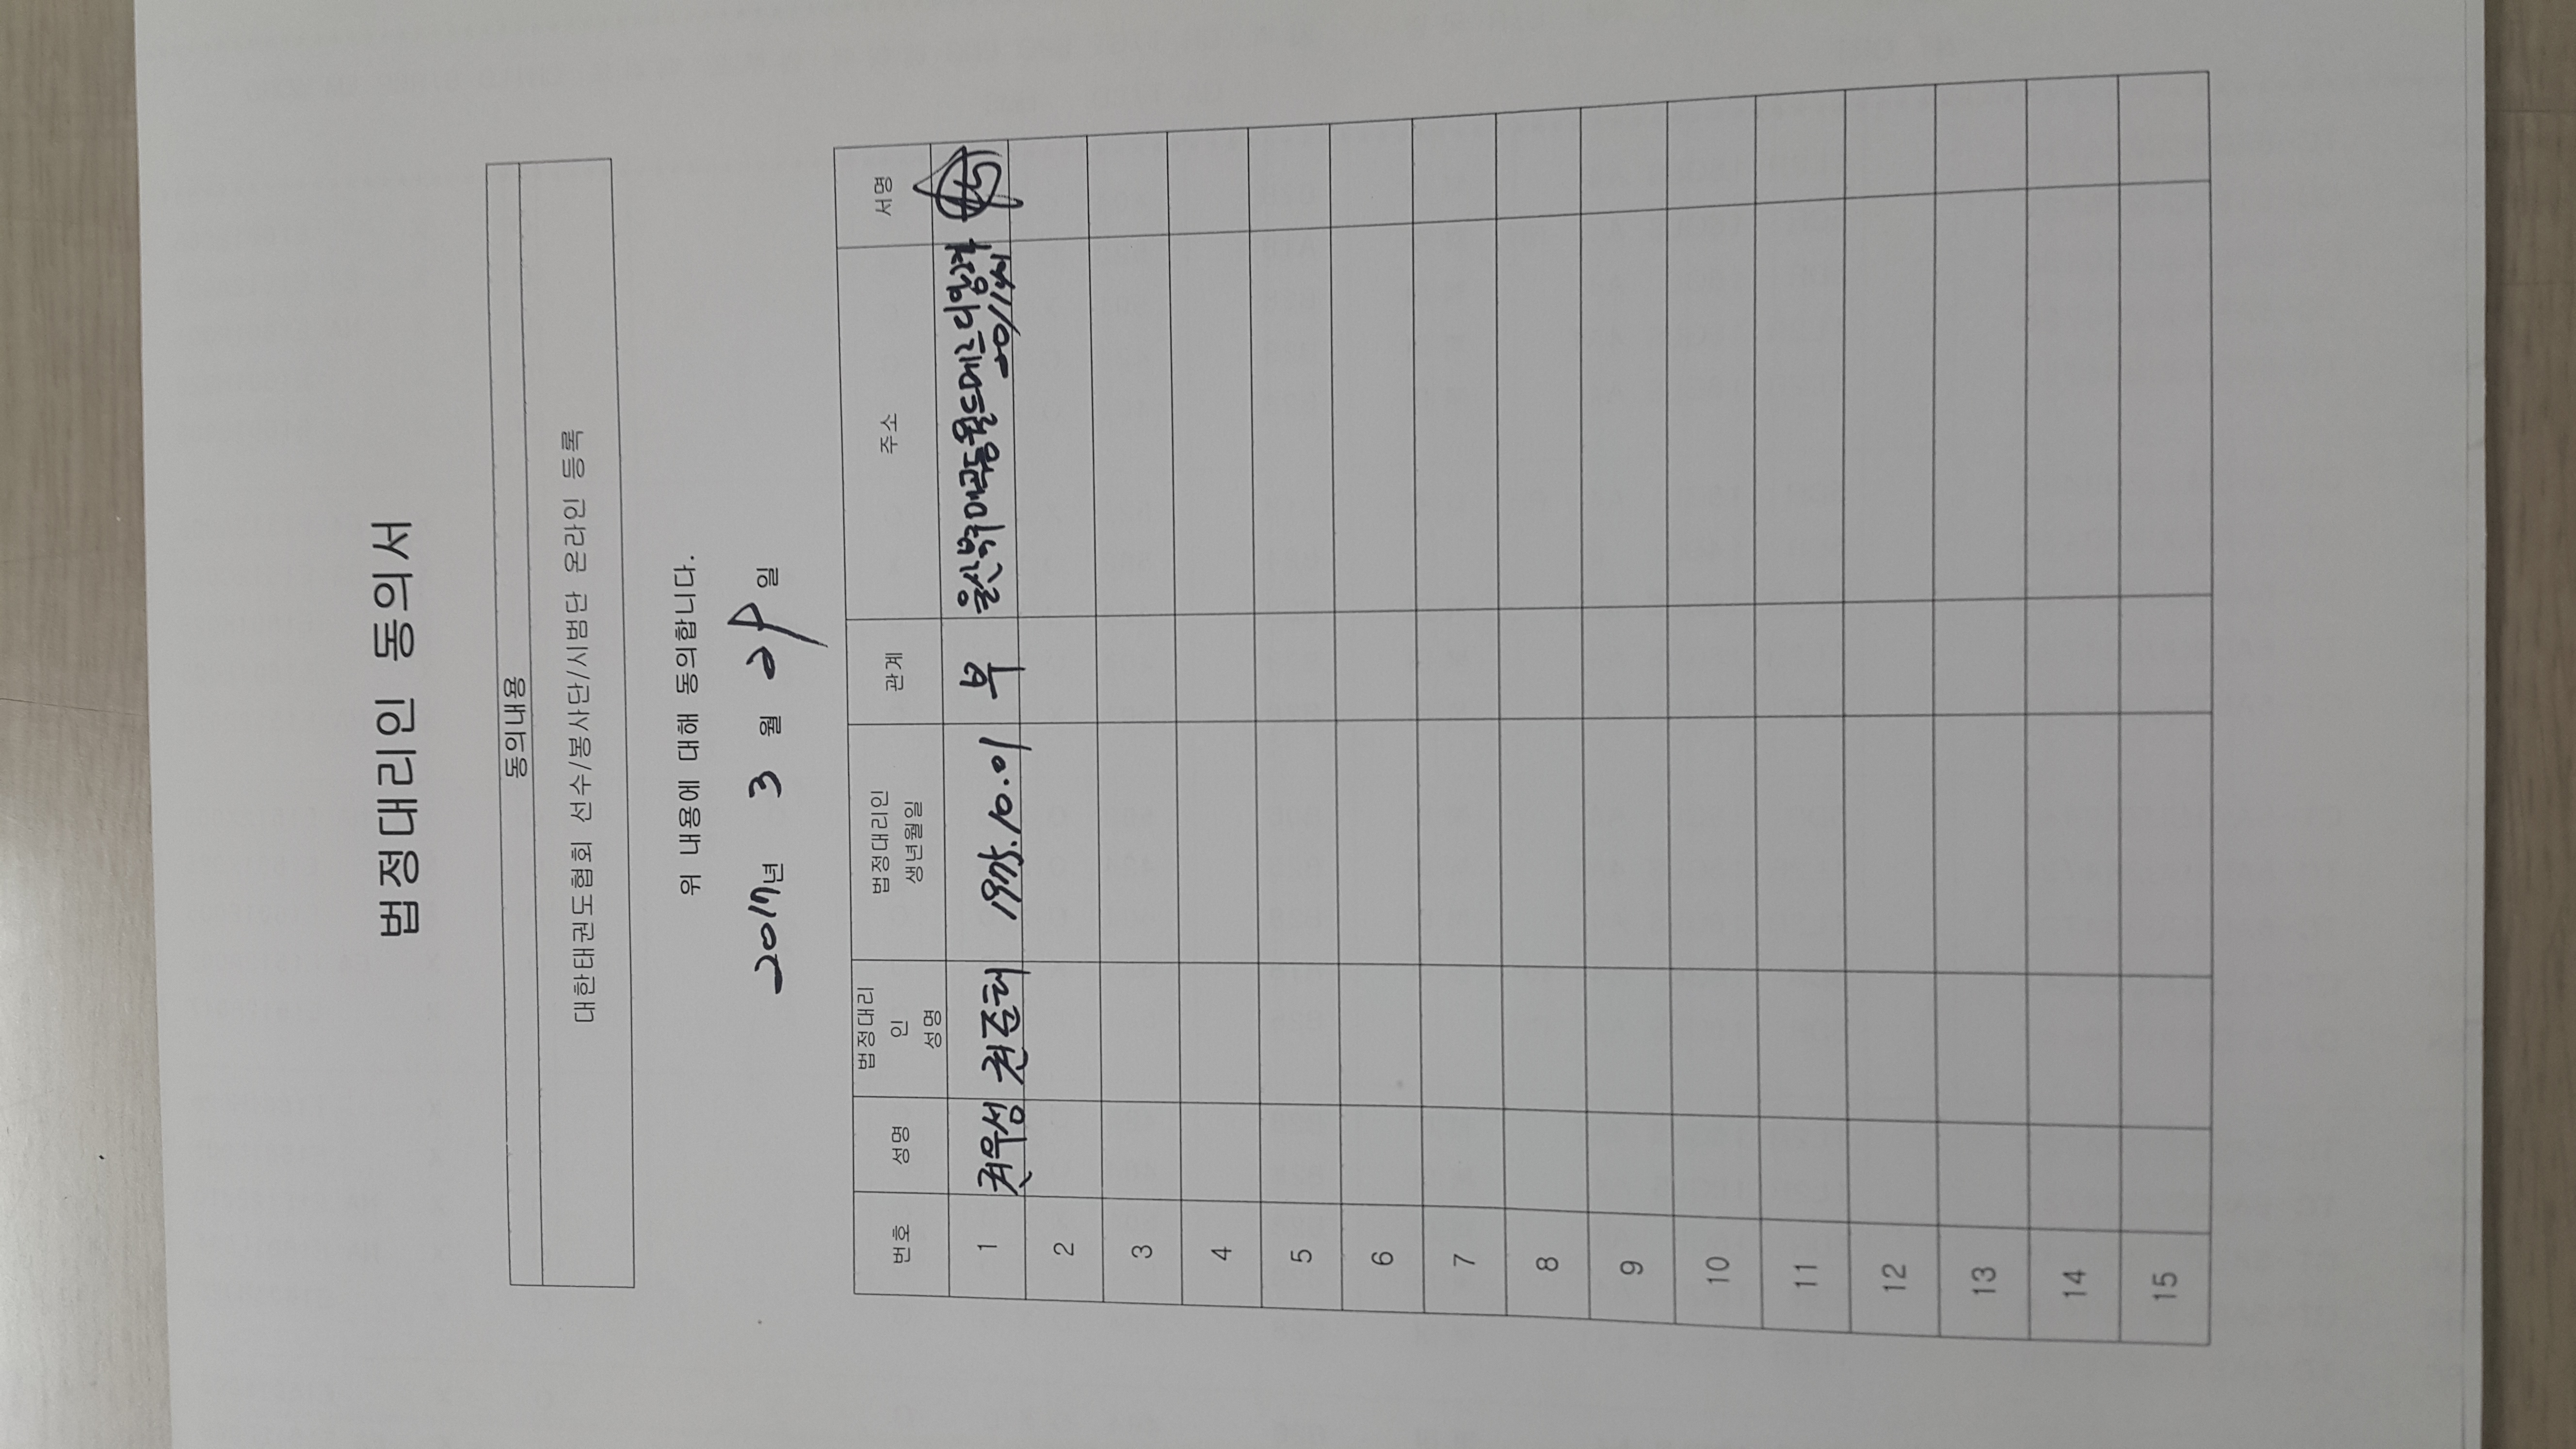 법정대리인 동의서
동의내용
대한태권도협회 선수/봉사단/시범단 온라인 등록
위 내용에 대해 동의합니다.
2017년 3 월 29 일
번호 성명 법정대리인 성명 법정대리인 생년월일 관계 주소 서명
1 권우성 권준태 1975.10.01 부
2
3
4
5
6
7
8
9
10
11
12
13
14
15